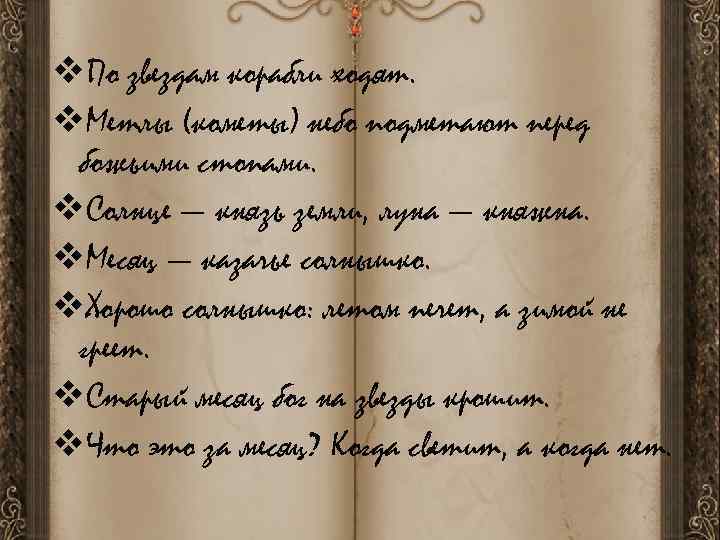 ❖По звездам корабли ходят.
❖Метлы (кометы) небо подметают перед
божьими стопами.
❖Солнце — князь земли, луна — княжна.
❖Месяц — казачье солнышко.
❖Хорошо солнышко: летом печет, а зимой не
греет.
❖Старый месяц бог на звезды крошит.
❖Что это за месяц? Когда светит, а когда нет.